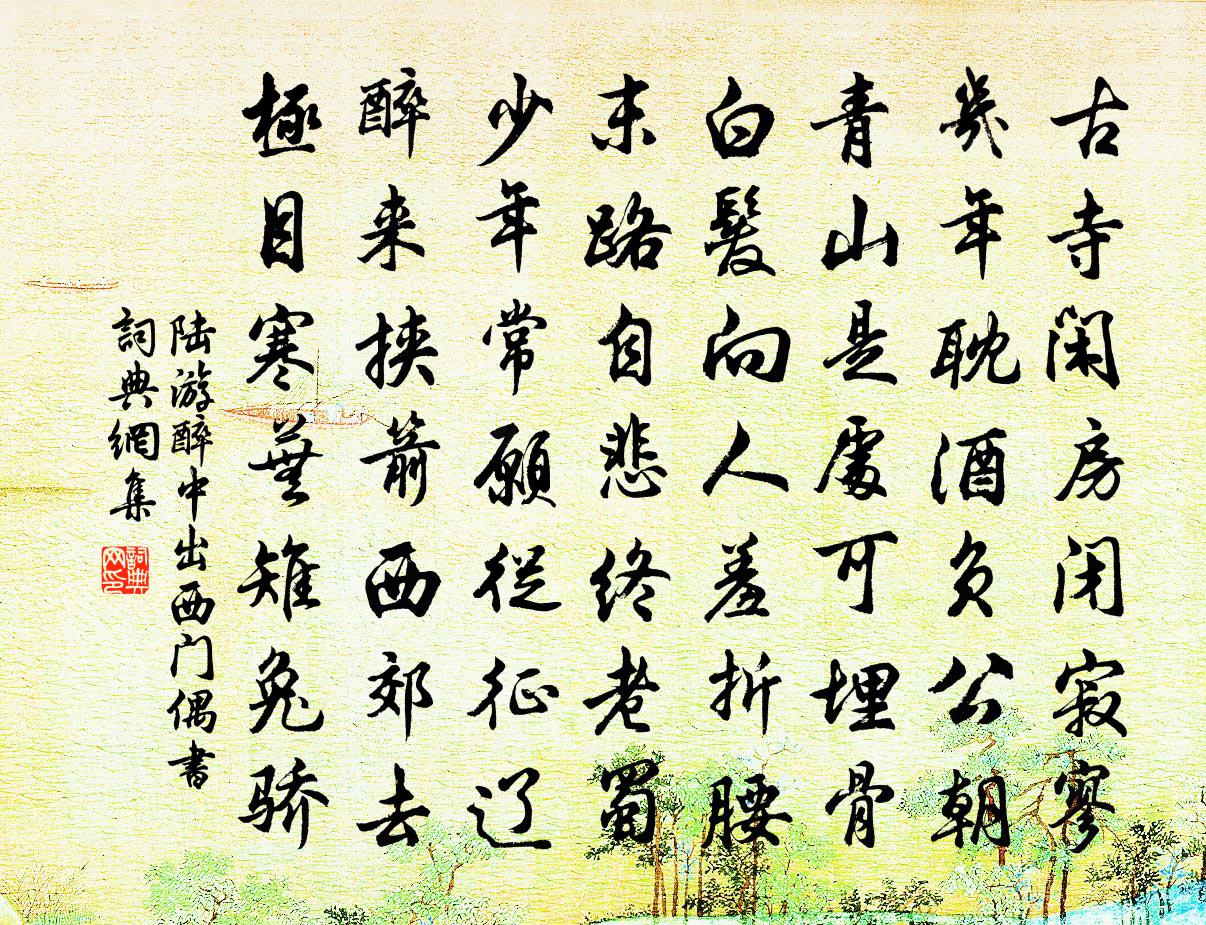 古寺闲房闭寂寥
幾年耽酒负公朝
青山是處可埋骨
白髮向人羞折腰
末路自悲终老蜀
少年常願從征辽
醉来挟箭西郊去
極目寒蕪雉兔骄
陆游醉中出西门偶書
詞典網集
詞典网印